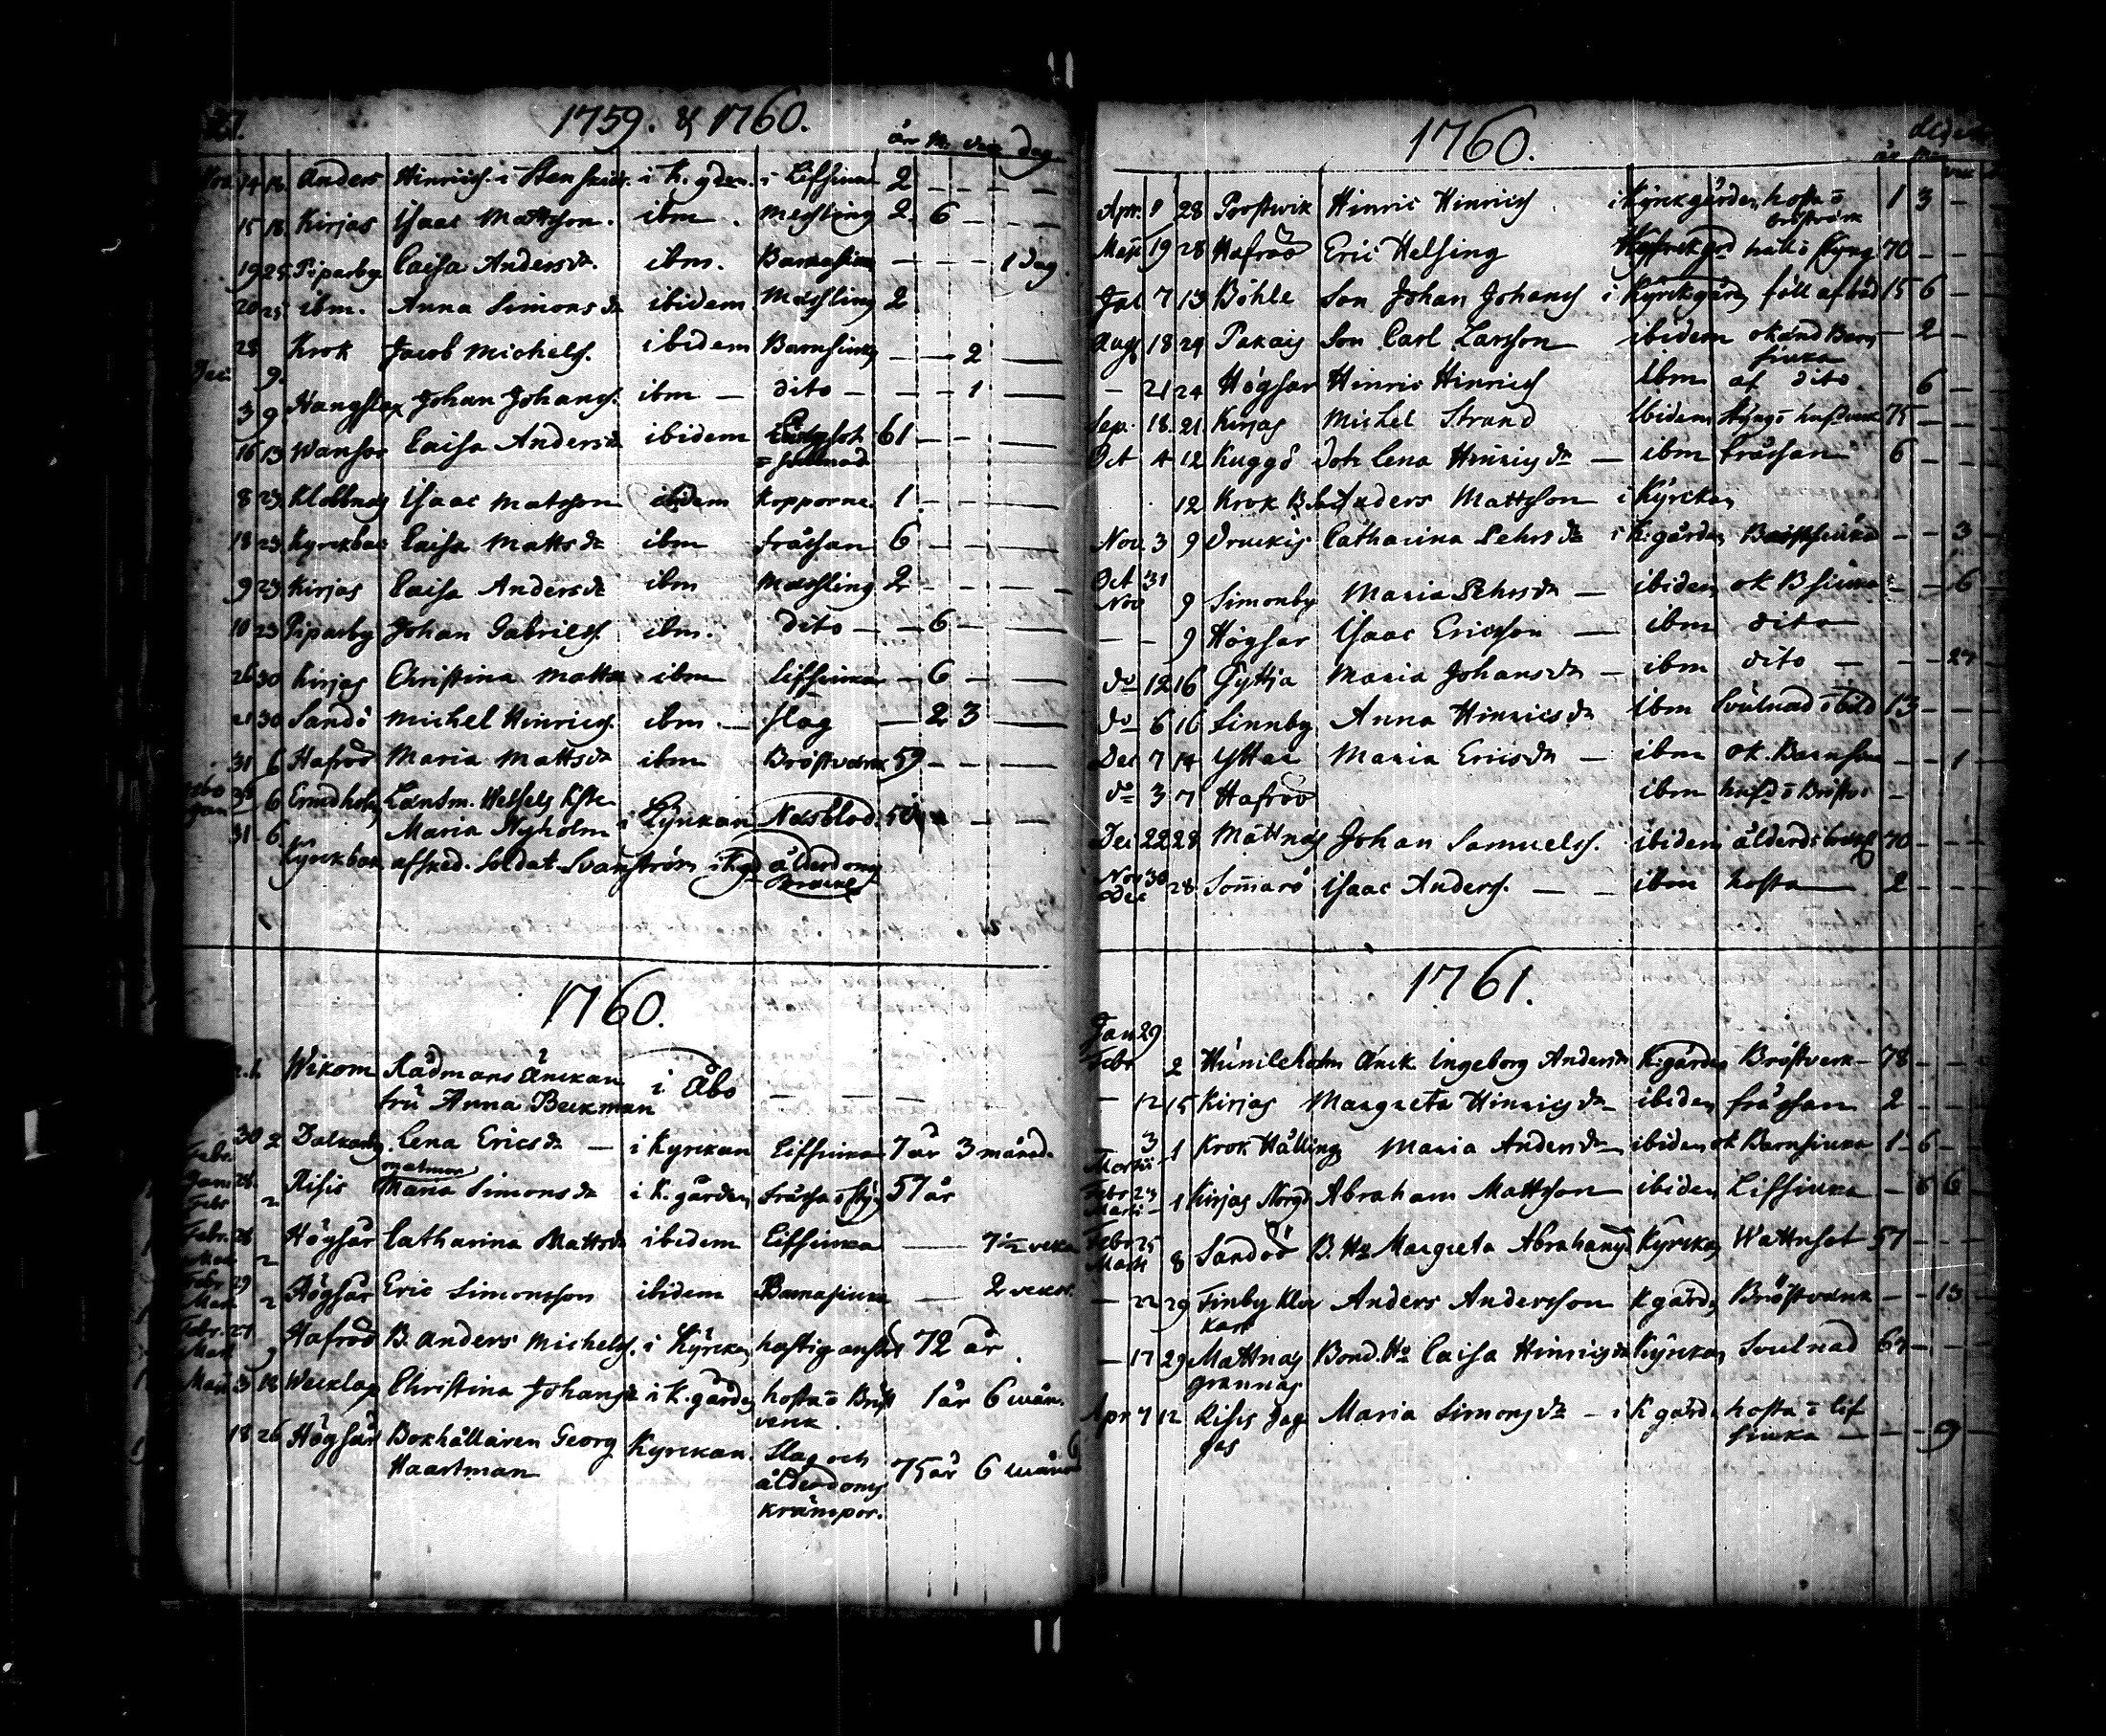 1759. & 1760.
år M. vec dag
14 18. Anders Hinrichs. i Stenskär. i K. gden. i Lifsiuka 2 - - - -
15 18. Kirjas Isaac Mattsson. ibm. Messling 2. 6 - - -
19 25. Piparby Caisa Anders dr. ibm. Barnasiuka - - - 1 dag.
20 25. ibm. Anna Simons dr ibidem Messling 2
28 Krok Jacob Michels. ibidem Barnsiuka - - 2 -
Dec: 9.
3 9. Hangslax Johan Johans. ibm - dito - - - 1 -
16 13 Wansor Caisa Anders dr ibidem 61 - - -
8 23. Klobbnäs Isaac Matsson ibidem Kopporne. 1. - - -
18 23. Kyrckbac Caisa Matts dr ibm fråssan 6 - - -
9 23 Kirjas Caisa Anders dr ibm Messling 2 - - -
10 23 Piparby Johan Gabriels. ibm. dito - - 6 - -
26 30 Kirjas Christina Matts dr ibm lifsiukan - 6 - -
21 30 Sandö Michel Hinrics. ibm - slag - 2 3 -
31 6 Hafröö Maria Matts dr ibm Bröstvärck 59 - - -
6 Ermdholm Landtm. Helsels Enka
31 6. Maria Nyholm i Kyrkan Näsblod. 50 - - -
Kyrckbac afsked. Soldat Svanström i Kgd ålderdoms
Brackl

1760.
Wikom Rådmans Änckan
fru Anna Beckman i Åbo - - -
30 2 Dalkarby. Lena Erics dr - i Kyrckan Lifsiuka 7 år 3 månad.
Febr.
Jan 28. Risis Maria Simons dr i K. gården fråssa o styng 57 år
Febr 2
Febr. 26 Högsår Catharina Matts dr ibidem Lifsiuka - 7 1/2 veka
Mart 2
Febr 29 Högsår Eric Simonsson ibidem Barnasiuka - 2 vekor.
Mart. 2
Febr. 27 Hafröö B. Anders Michels. i Kyrckan hastig anstöt 72 år.
Mart 9
Mart 3 18 Wecklax Christina Johans dr i K. gården hosta o Bröst 1 år 6 mån.
verck.
18 26 Högsår Bokhållaren Georg Kyrckan. Slag och 75 år 6 månad
Haartman ålderdoms
krämpor.

1760. ålder
år mån vec
Apr. 9 28 Prostvik Hinric Hinrics i Kyrckgården hosta o 1 3 - -
bröstvärk
Maji 19 28 Hafröö Eric Helsing håll o styng 70 - - -
Jul 7 13 Böhle Son Johan Johans i Kyrckgården föll af båd 15 6 -
Aug 18 24 Pakais Son Carl Larsson ibidem okänd Barn - 2 -
siuka
- 21 24 Högsar Hinric Hinrics ibm af dito 6 -
Sep. 18. 21 Kirjas Michel Strand Ibidem styng o hufdverck 75 - -
Oct 4 12 Kuggö dotr Lena Hinrics dr - ibm fråssan 6 - -
12 Krok Anders Mattsson i Kyrckan
Nov 3 9 Druckis Catharina Pehrs dr i K. gården - - 3 -
Oct 31
Nov 9 Simonby Maria Pehrs dr - ibidem ok B siuka - - 6 -
- - 9 Högsar Isaac Ericsson - ibm dito
do 12 16 Gyttja Maria Johans dr - ibm dito - - - 24 -
do 6 16 Finnby Anna Hinrics dr ibm Svulnad 13 - - -
Dec 7 14 Yttar Maria Erics dr - ibm ok. Barnsiuka - - 1 -
do 3 7 Hafröö ibm hufd o Bröstv -
Dec 22 28 Mattnäs Johan Samuels. ibidem ålderds brackl 70 - - -
Nov 30
Dec 28. Sommarö Isaac Anders. - - ibm hosta - 2 - - -

1761.
Jan 29
Febr 2 Humleholm Änck. Ingeborg Anders dr K: gården Bröstverck - 78 - -
- 12 15 Kirjas Margreta Hinrics dr ibidem fråssan 2 - -
3
Martii 1 Krok Hälling Maria Anders dr ibidem ok Barnsiuka 1 6 -
Febr 23
Marti 1 Kirjas Norgd Abraham Mattsson ibidem Lifsiuka - 6 6 -
Febr 25
Marti 8 Sandöö B. Ho Margreta Abrahams d Kyrckan Wattusot 57 - -
- 22 29 Finby Klockars Anders Andersson K gården Bröstvärck - - 13 -
- 17 29 Mattnäs Bond. Ho Caisa Hinrics dr Kyrckan Svulnad 64 - -
grannas
Apr 4 12 Risis Maria Simons dr - i K gården hosta o lif
siuka - - - 9 -